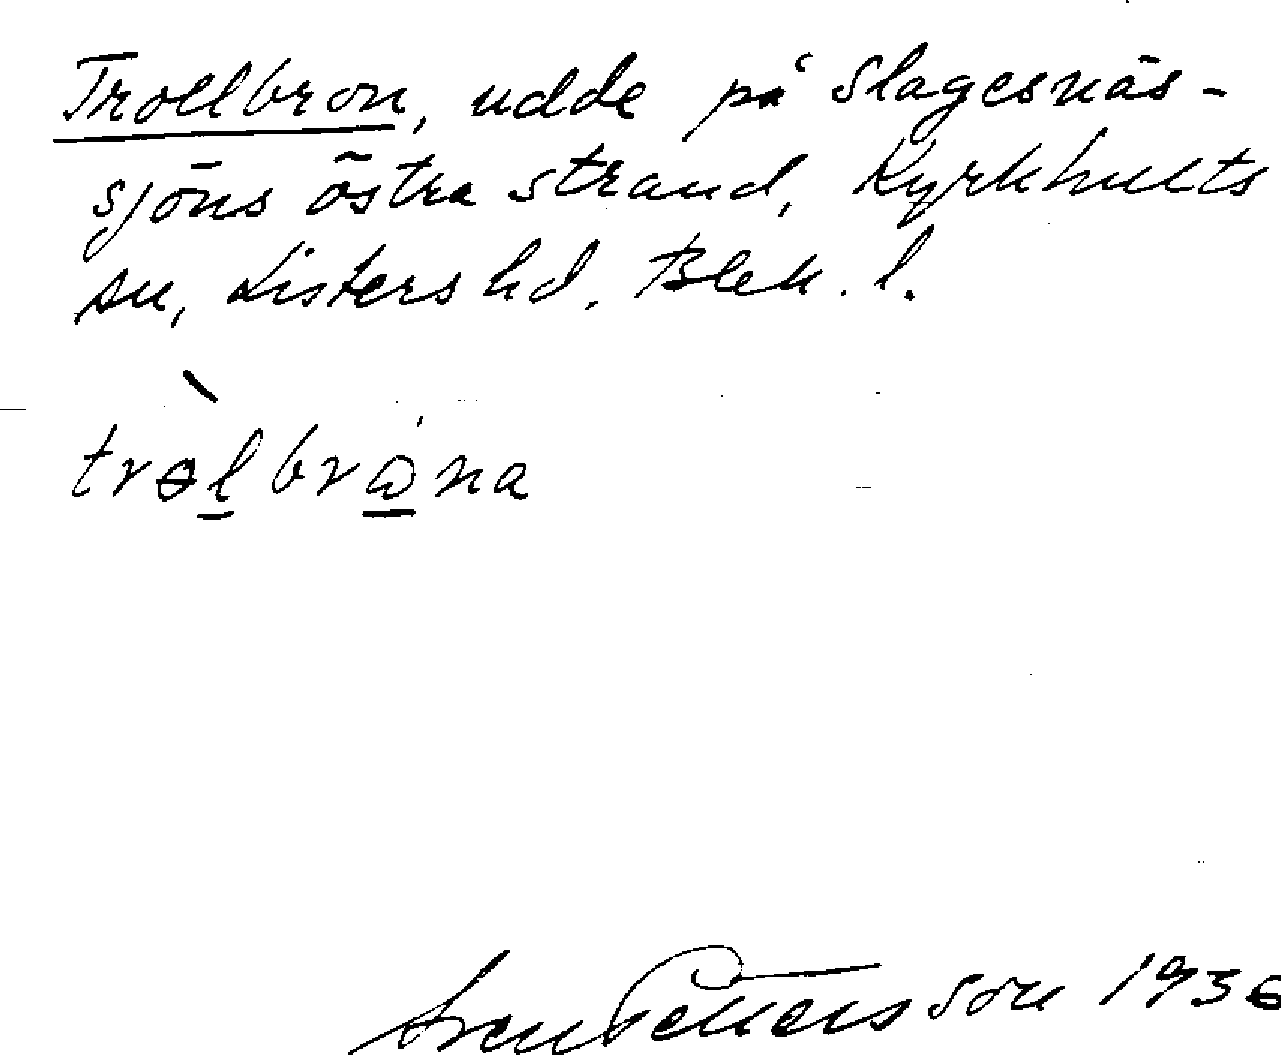 Trollbron, udde på Slagesnäs-
sjöns östra strand, Kyrkhults
sn, Listers hd. Blek. l.
trølbrωna
Sven Pettersson 1936